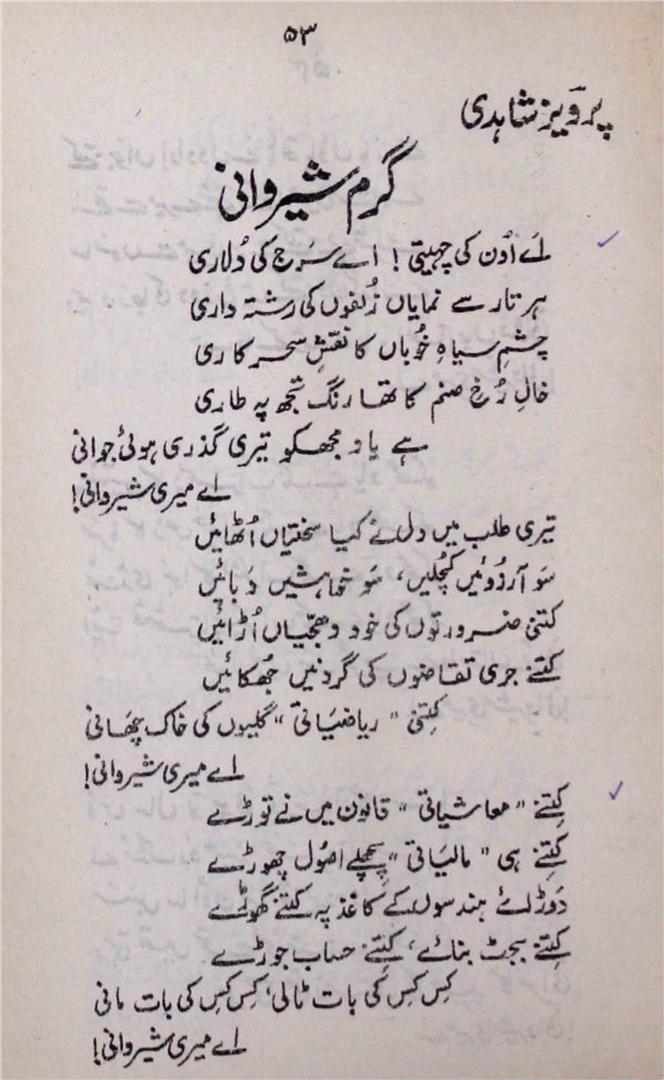 ۵۳
پرویز شاہدی
گرم شیروانی
اَے اُون کی چہیتی! اے سَرج کی دُلاری
ہر تار سے نمایاں زُلفوں کی رشتہ داری
چشمِ سیاہِ خُوباں کا نقشِ سحر کاری
خالِ رُخِ صنم کا تھا رنگ تجھ پہ طاری
ہے یاد مجھکو تیری گذری ہوئی جوانی
اے میری شیروانی!
تیری طلب میں دل نے کیا سختیاں اُٹھائیں
سَو آرزوئیں کُچلیں، سَو خواہشیں دَبائیں
کتنی ضرورتوں کی خود دھجّیاں اُڑائیں
کتنے جری تقاضوں کی گردنیں جُھکائیں
کِتنی "ریاضیَاتی" گلیوں کی خاک چھَانی
اے میری شیروانی!
کِتنے "معاشیاتی" قانون میں نے توڑے
کِتنے ہی "مالیَاتی" پچھلے اصُول چھوڑے
دَوڑائے ہندسوں کے کاغذ پہ کتنے گھوڑے
کِتنے بجٹ بنائے، کِتنے حساب جوڑے
کِس کِس کی بات ٹالی، کِس کِس کی بات مانی
اے میری شیروانی!